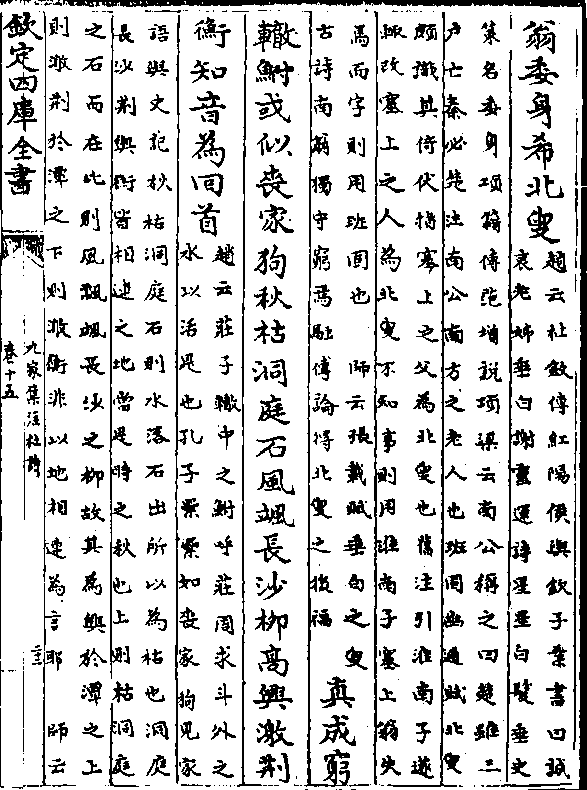 翁委身希北叟
趙云杜欽傳紅陽侯與欽子業書曰誠
哀老姊垂白謝靈運詩星星白髮垂史
策名委身項籍傳范增說項梁云南公稱之曰楚雖三
戶亡秦必楚注南公南方之老人也班固幽通賦北叟
頗識其倚伏指塞上之父為北叟也舊注引淮南子遂
輒改塞上之人為北叟不知事則用淮南子塞上翁失
馬而字則用班固也 師云張載賦垂白之叟
古詩南翁獨守窮馬融傳論得北叟之後福
真成窮
轍鮒或似喪家狗秋枯洞庭石風颯長沙柳高興激荆
衡知音為回首
趙云莊子轍中之鮒呼莊周求斗升之
水以活是也孔子纍纍如喪家狗見家
語與史記秋枯洞庭石則水落石出所以為枯也洞庭
長沙荆與衡皆相連之地當是時之秋也上則枯洞庭
之石而在此則風飄颯長沙之柳故其為興於潭之上
則激荆於潭之下則激衡非以地相連為言耶 師云
欽定四庫全書
九家集注杜詩
卷十五